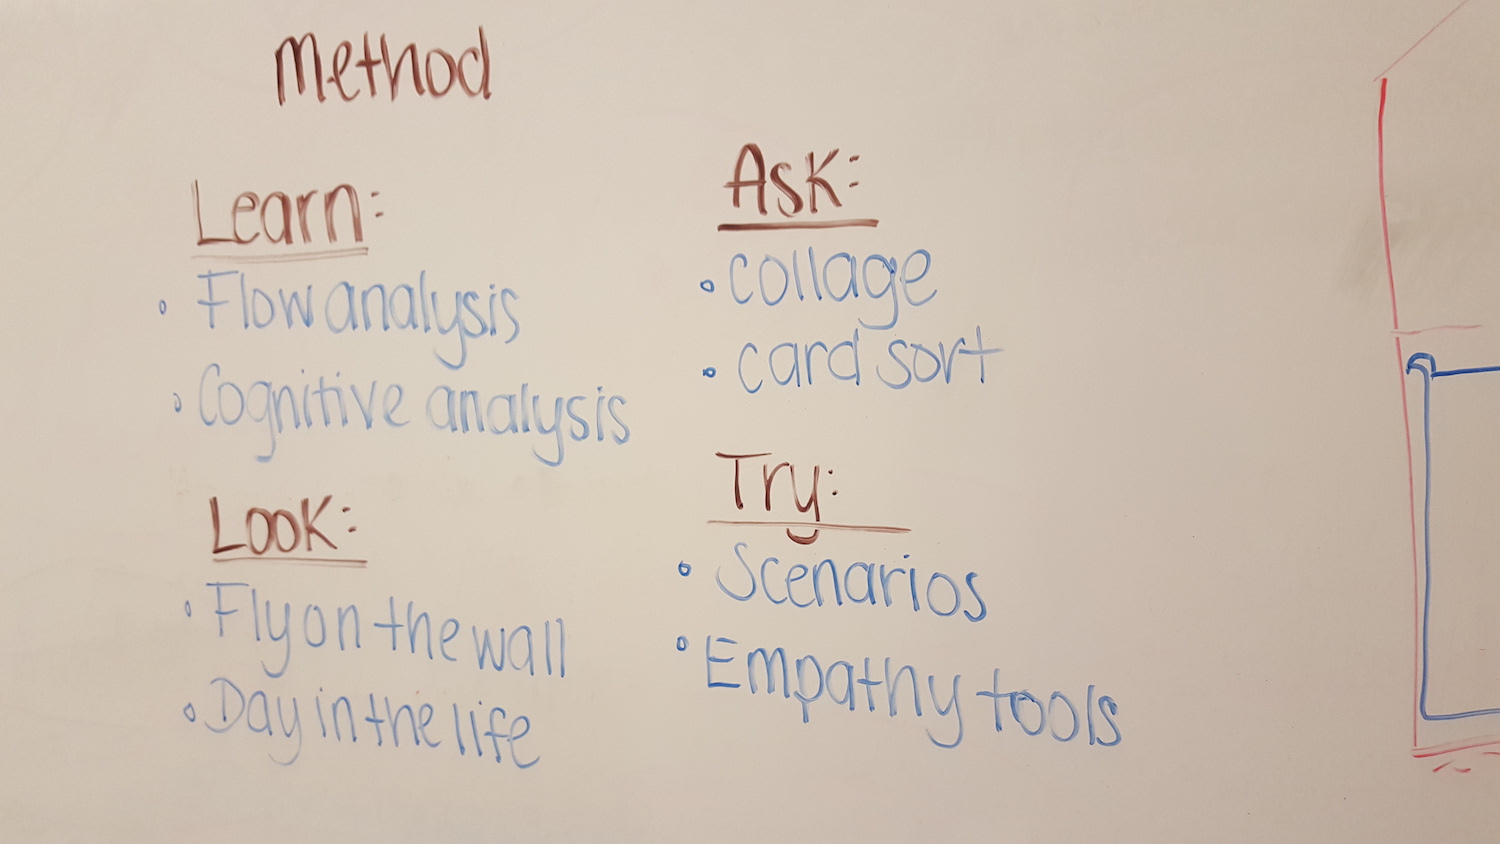 Method
Learn:
Flow analysis
Cognitive analysis
Look:
Fly on the wall
Day in the life
Ask:
collage
card sort
Try:
Scenarios
Empathy tools